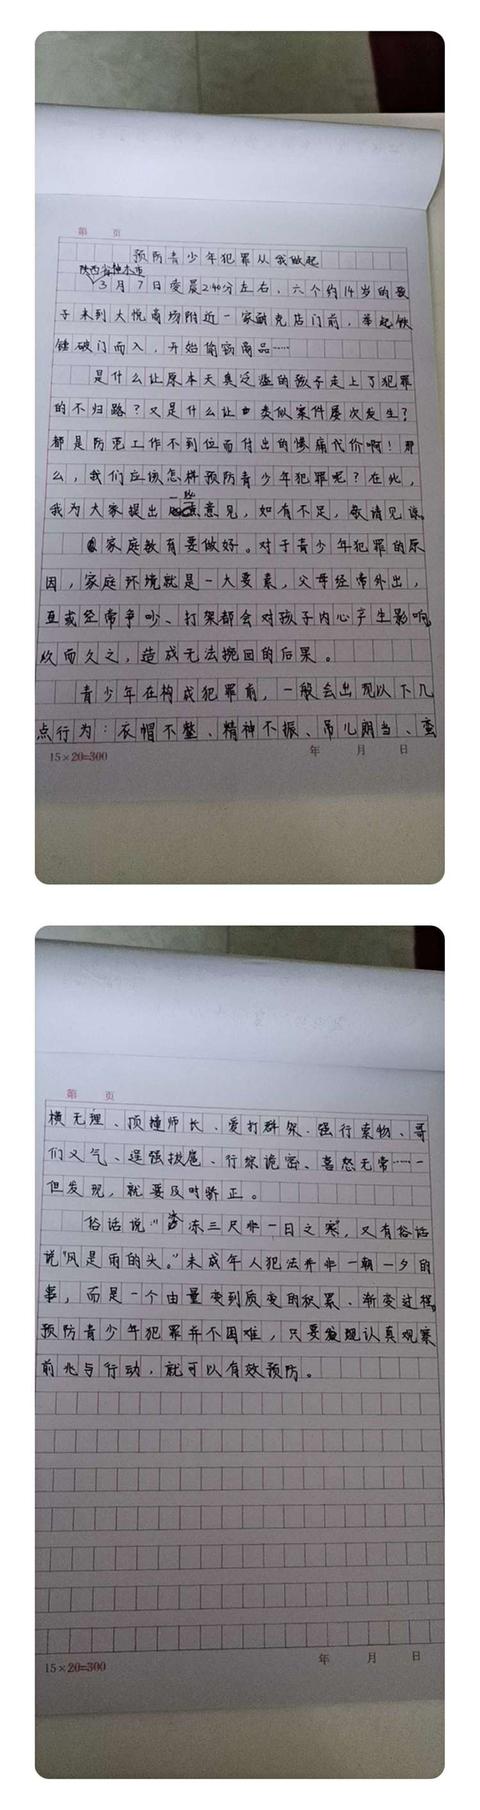 第 页
预防青少年犯罪从我做起
陕西省神木市
3月7日凌晨2:40分左右，六个约14岁的孩
子来到大悦商场附近一家酷克店门前，举起铁
锤破门而入，开始偷窃商品……
是什么让原本天真泛滥的孩子走上了犯罪
的不归路？又是什么让类似案件屡次发生？
都是防范工作不到位而付出的惨痛代价啊！那
么，我们应该怎样预防青少年犯罪呢？在此，
一些
我为大家提出意见，如有不足，敬请见谅。
家庭教育要做好。对于青少年犯罪的原
因，家庭环境就是一大要素，父母经常外出，
亦或经常争吵、打架都会对孩子内心产生影响。
久而久之，造成无法挽回的后果。
青少年在构成犯罪前，一般会出现以下几
点行为：衣帽不整、精神不振、吊儿郎当、蛮
15×20=300 年 月 日
第 页
横无理、顶撞师长、爱打群架、强行索物、哥
们义气、逞强拔扈、行踪诡密、喜怒无常……一
但发现，就要及时矫正。
俗话说“冰冻三尺非一日之寒”，又有俗话
说“风是雨的头。”未成年人犯法并非一朝一夕的
事，而是一个由量变到质变的积累、渐变过程。
预防青少年犯罪并不困难，只要发现认真观察
前兆与行动，就可以有效预防。
15×20=300 年 月 日